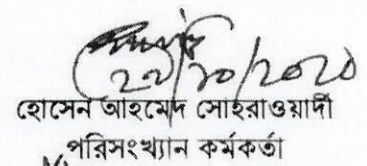 ২২/১০/২০২০
হোসেন আহমেদ সোহরাওয়ার্দী
পরিসংখ্যান কর্মকর্তা